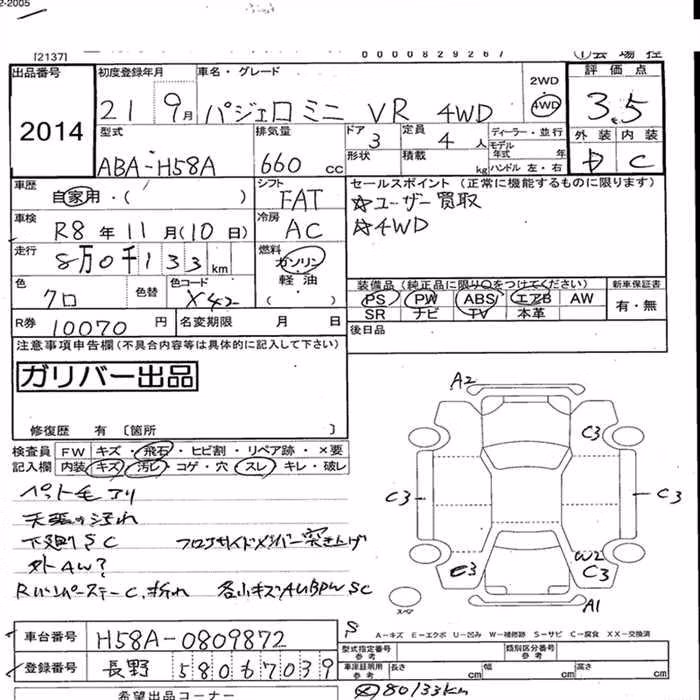 2-2005
[2137] 0000829267 ①会場控
出品番号 初度登録年月 車名・グレード 2WD 4WD 評価点
2014 21 9月 パジェロミニ VR 4WD 3.5
型式 排気量 ドア 定員 ディーラー・並行 外装 内装
ABA-H58A 660cc 3 4人 モデル年式 年 D C
形状 積載 kg ハンドル 左・右
車歴 シフト セールスポイント (正常に機能するものに限ります)
自家用・( ) FAT ☆ユーザー買取
車検 冷房 ☆4WD
R8年11月(10日) AC
走行 燃料
8万0千133km ガソリン・軽油 ( )
色 色替 色コード 装備品(純正品に限り○をつけてください) 新車保証書
クロ X42 PS PW ABS エアB AW 有・無
SR ナビ TV 本革
R券 10070円 名変期限 月 日 後日品
注意事項申告欄(不具合内容等は具体的に記入して下さい)
ガリバー出品
修復歴 有 〔箇所 〕
検査員 FW キズ・飛石・ヒビ割・リペア跡・×要
記入欄 内装 キズ・汚レ・コゲ・穴・スレ・キレ・破レ
ペット毛アリ
天張り汚れ
下廻りSC フロントサイドメンバー突き上げ
外AW?
Rバンパーステー C、折れ 各小キズAUBPWSC
A2
C3
C3 C3
C3 W2
C3
A1
スペア
A-キズ E-エクボ U-凹み W-補修跡 S-サビ C-腐食 XX-交換済
車台番号 H58A-0809872 型式指定番号 参考 類別区分番号 参考
登録番号 長野 580 67039 車庫証明用 参考 長さ cm 幅 cm 高さ cm
希望出品コーナー 80133km